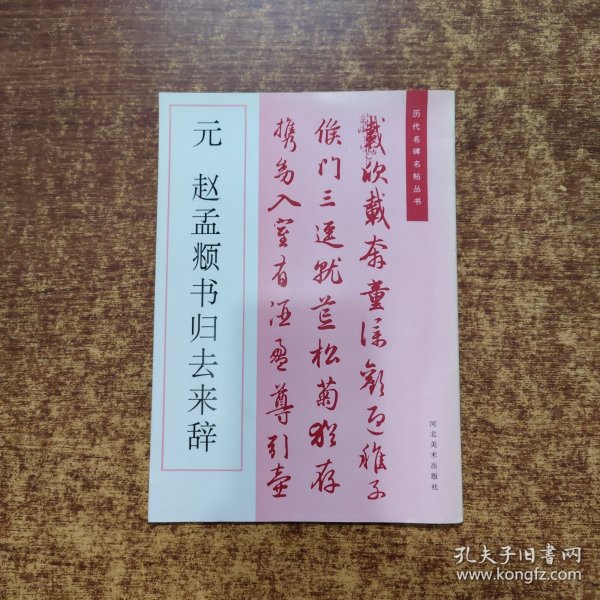 历代名碑名帖丛书
元 赵孟頫书归去来辞
載欣載奔童僕歡迎稚子
候门三逕就荒松菊猶存
携幼入室有酒盈尊引壶
河北美术出版社
孔夫子旧书网
www.kongfz.com